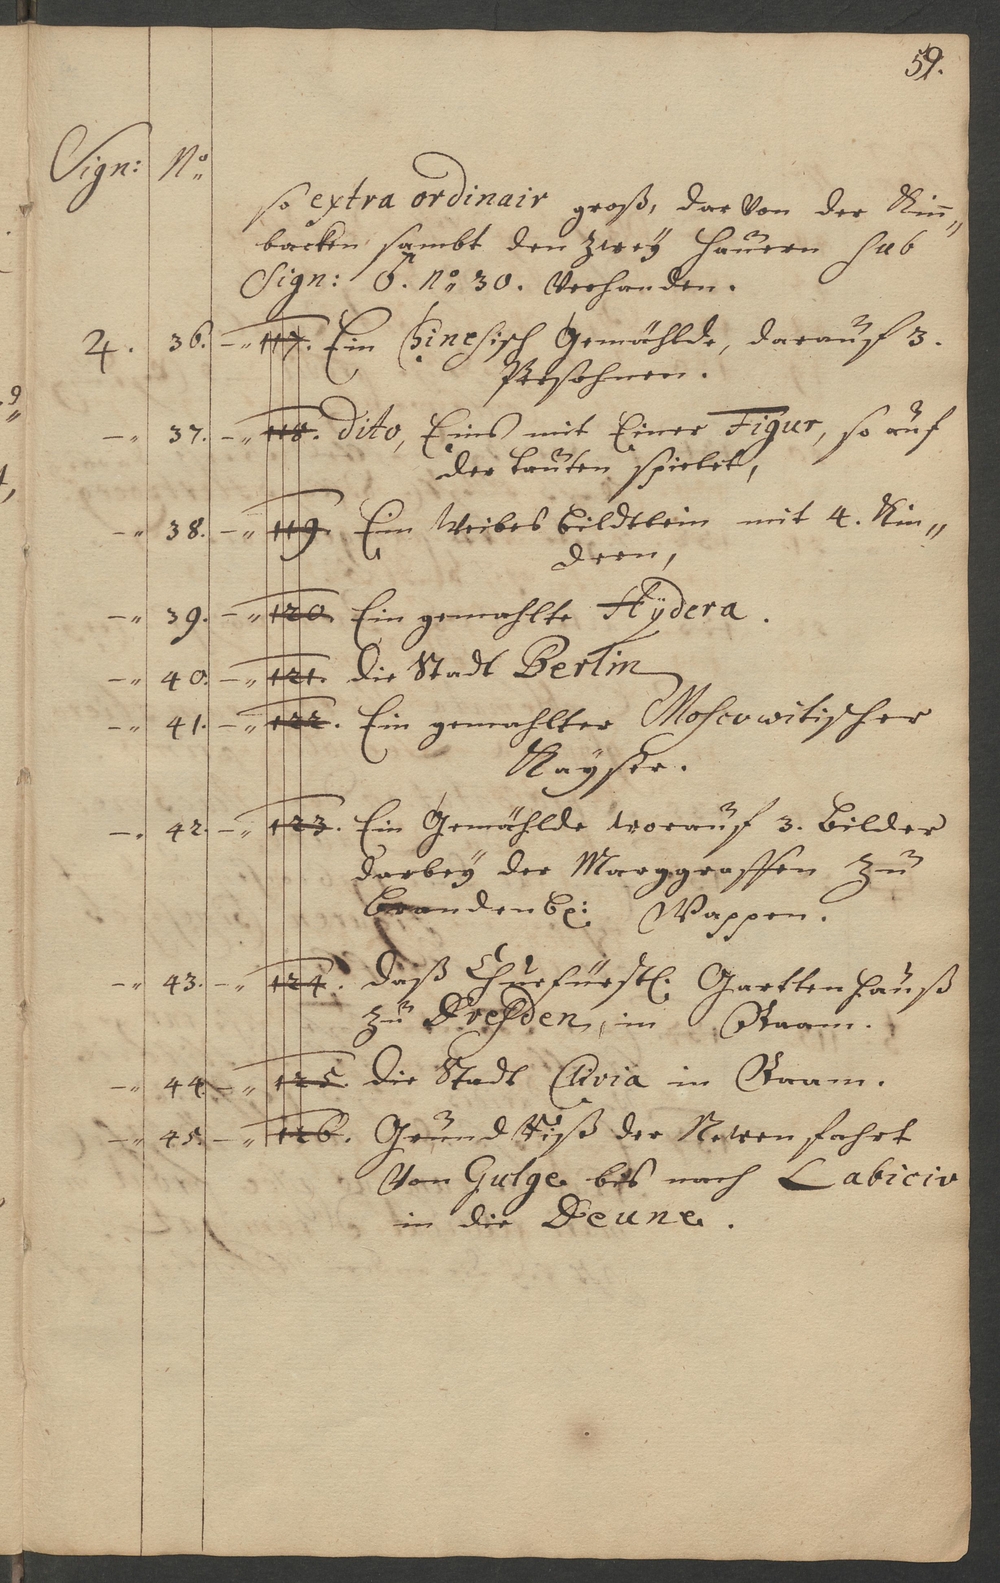 59.
Sign: No
so extra ordinair groß, dar von der Kin„
backen sambt den zweÿ Hauern sub
Sign: No 30. verhanden.
4. 36. -„ 117. Ein Chinesisch Gemählde, darauf 3.
Persohnen.
-„ 37. -„ 118. dito, Eins mit Einer Figur, so auf
der Lauten spielet,
-„ 38. -„ 119. Ein Weibes Bildtlein mit 4. Kin„
dern,
-„ 39. -„ 120. Ein gemahlte Hÿdera.
-„ 40. -„ 121. die Stadt Berlin
-„ 41. -„ 122. Ein gemahlter Moscowitischer
Kaÿser.
-„ 42. -„ 123. Ein Gemählde worauf 3. Bilder
darbeÿ der Marggraffen zu
Brandenbg: Wappen.
-„ 43. -„ 124. daß Churfürstl: Gartten Hauß
zu Dresden, in Raam.
-„ 44. -„ 125. die Stadt Clivia in Raam.
-„ 45. -„ 126. Grund Riß der Newen fahrt
von Gulge bis nach Labiciv
in die Deune.